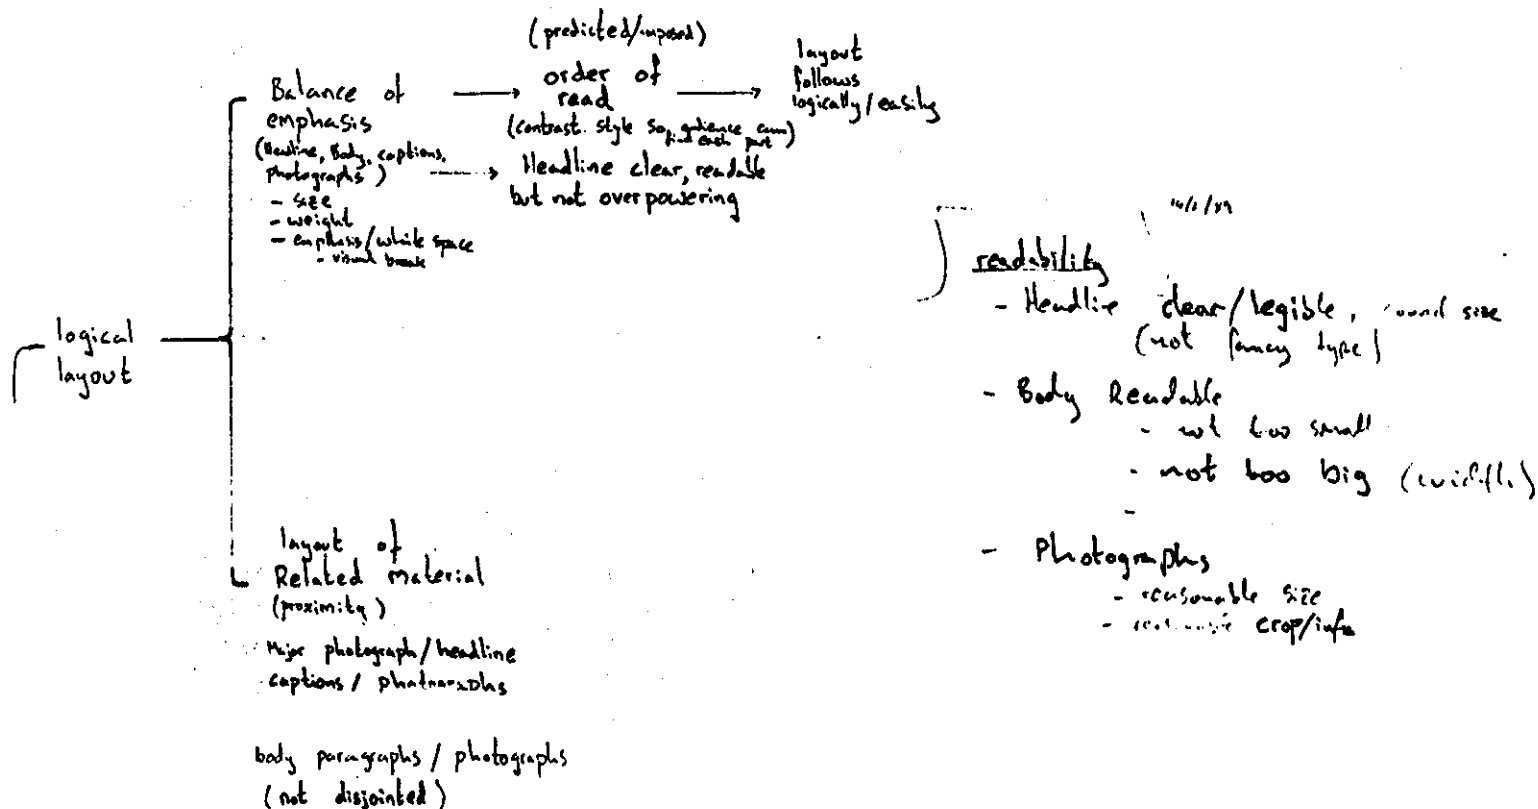 logical
layout
Balance of
emphasis
(Headline, Body, captions,
photographs)
- size
- weight
- emphasis/white space
- visual break
(predicted/imposed)
order of
read
(contrast style so audience can
find each part)
layout
follows
logically/easily
Headline clear, readable
but not overpowering
layout of
Related material
(proximity)
Major photograph/headline
captions / photographs
body paragraphs / photographs
(not disjointed)
readability
- Headlie clear/legible, size
(not fancy type)
- Body Readable
- not too small
- not too big
-
- Photographs
- reasonable size
- crop/info